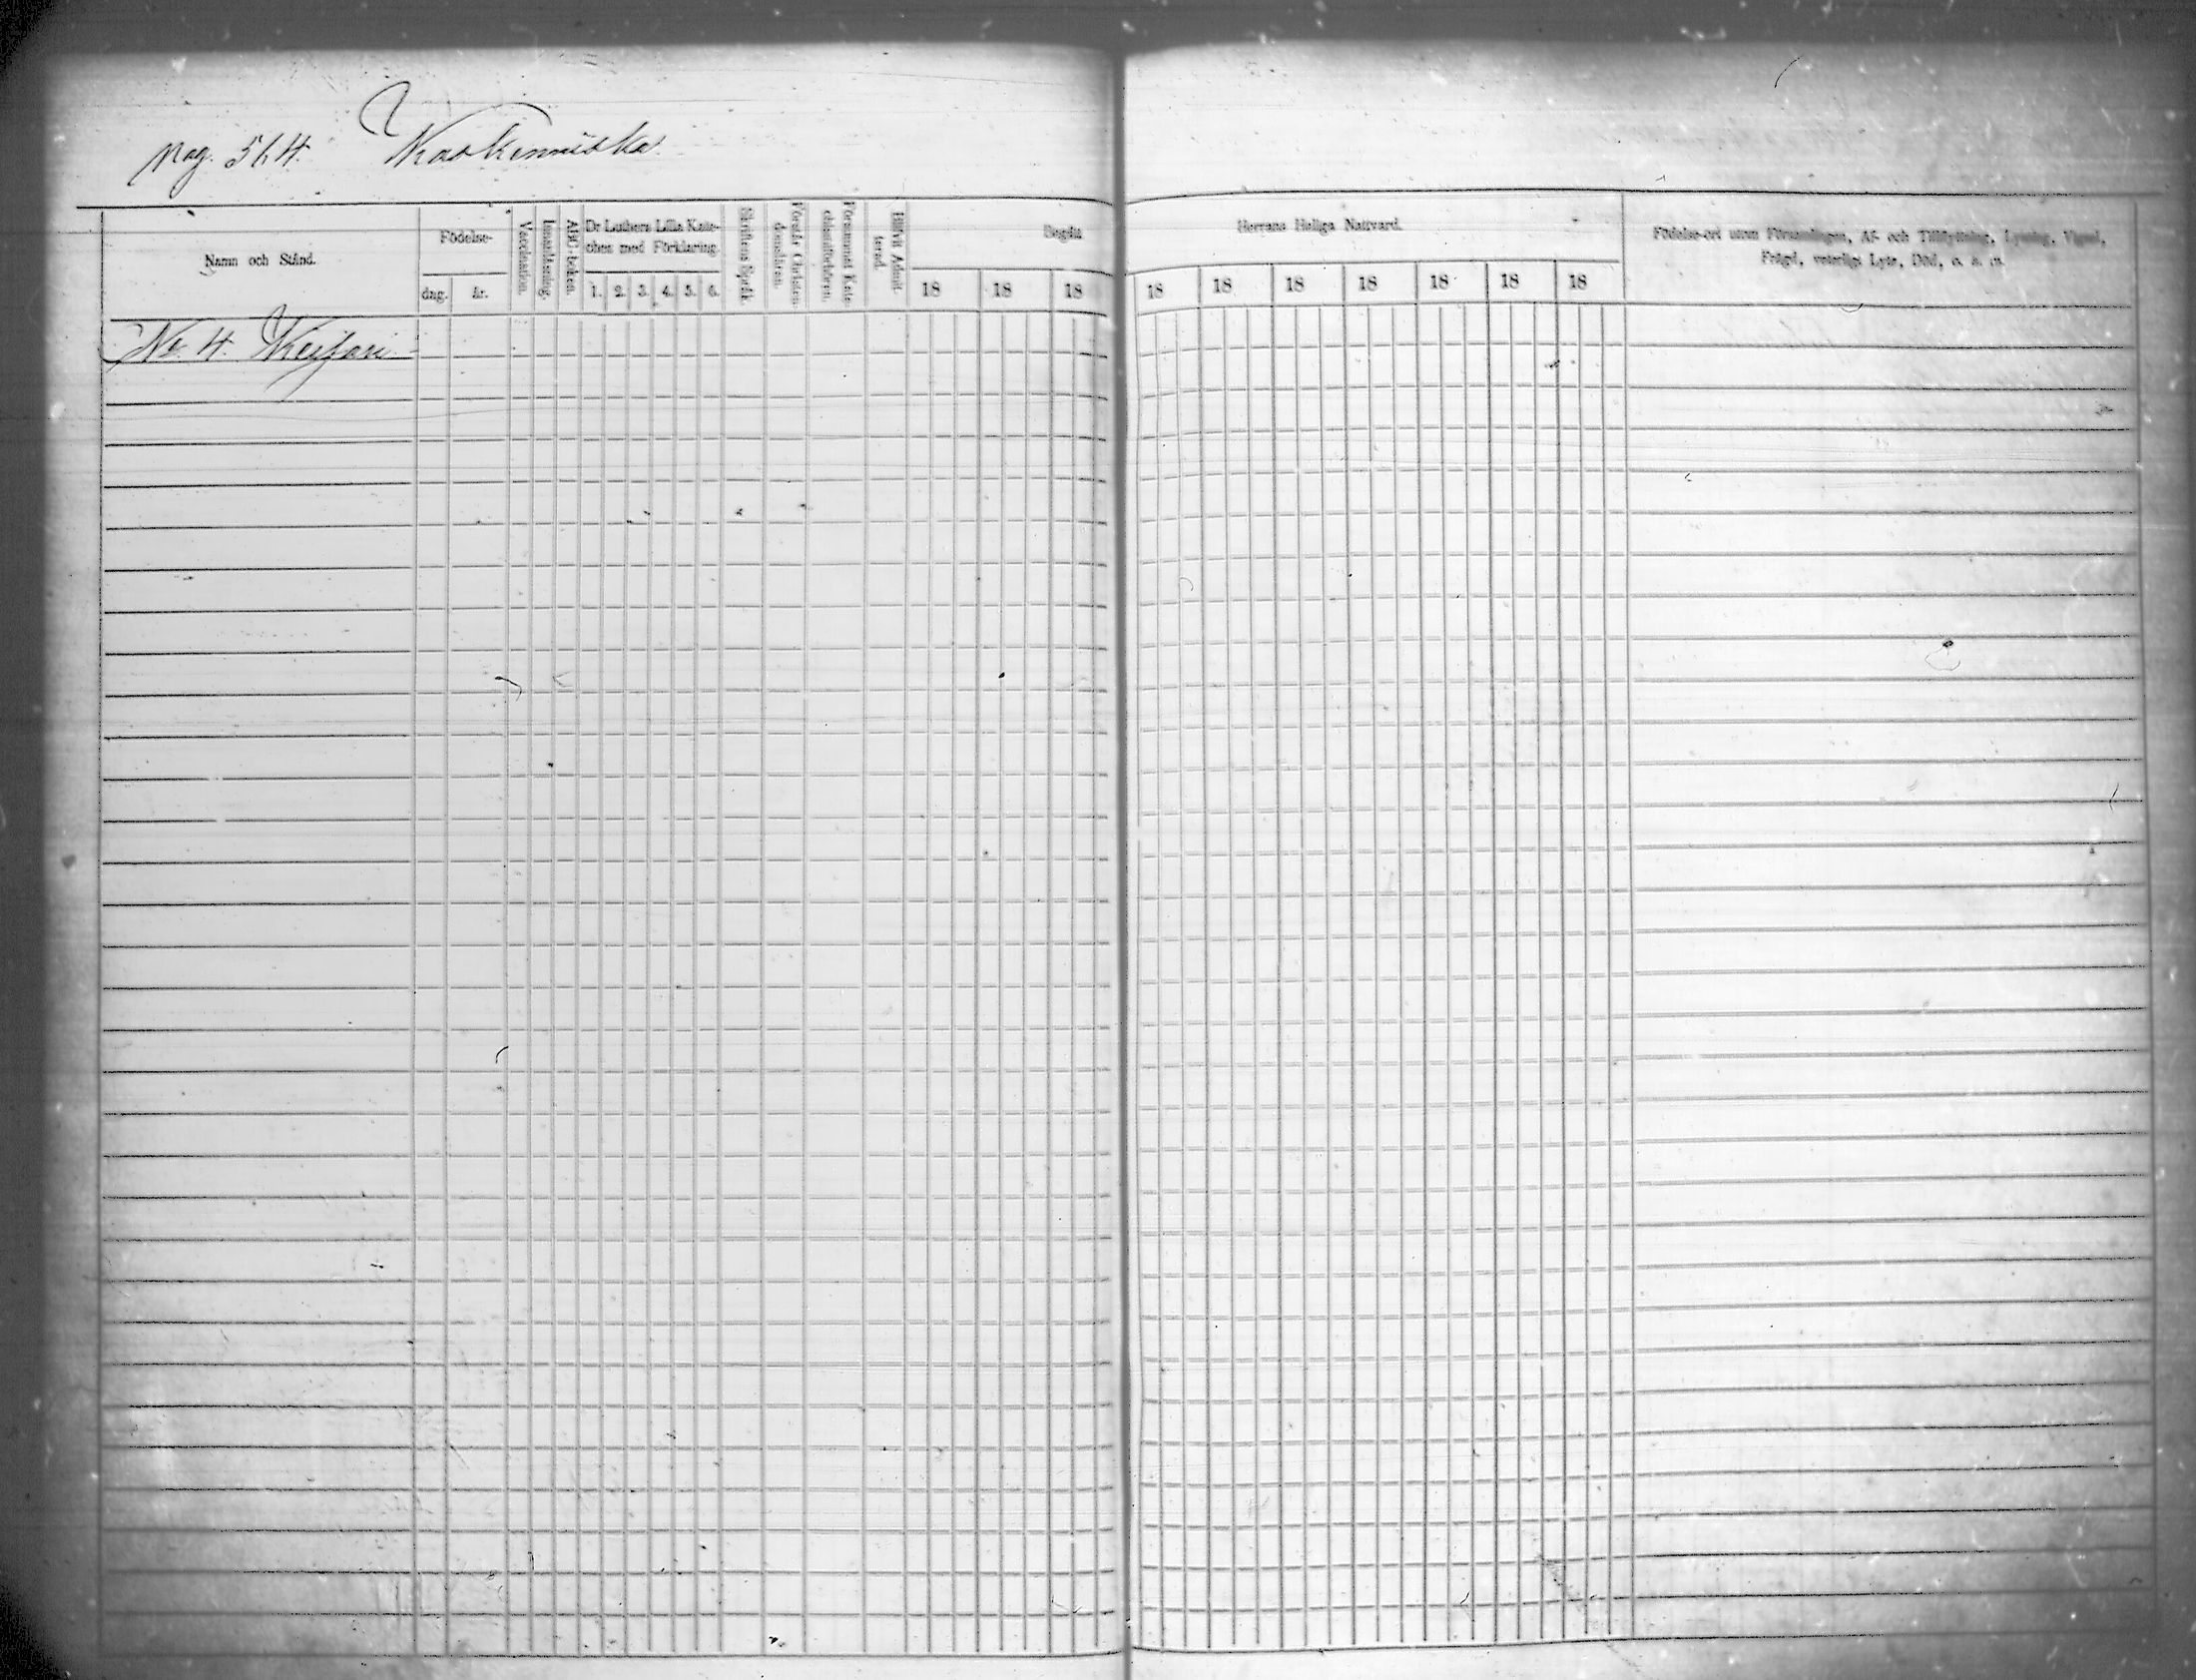 pag. 514. Kaskemiska
Namn och Stånd.
Födelse-
dag.
år.
Vaccination.
Innanläsning.
ABC boken.
Dr Luthers Lilla Kate-
ches med Förklaring.
1. 2. 3. 4. 5. 6.
Skriftens Språk.
Förstår Christen-
domsläran.
Försummat Kate-
chismiförhören.
Blifvit Admit-
terad.
Begått
Herrans Heliga Nattvard.
18 18 18 18 18 18 18 18 18 18
Födelse-ort utom Församlingen, Af- och Tillflyttning, Lysning, Vigsel,
Frägd, veterligt Lyte, Död, o. s. m.
No 4.